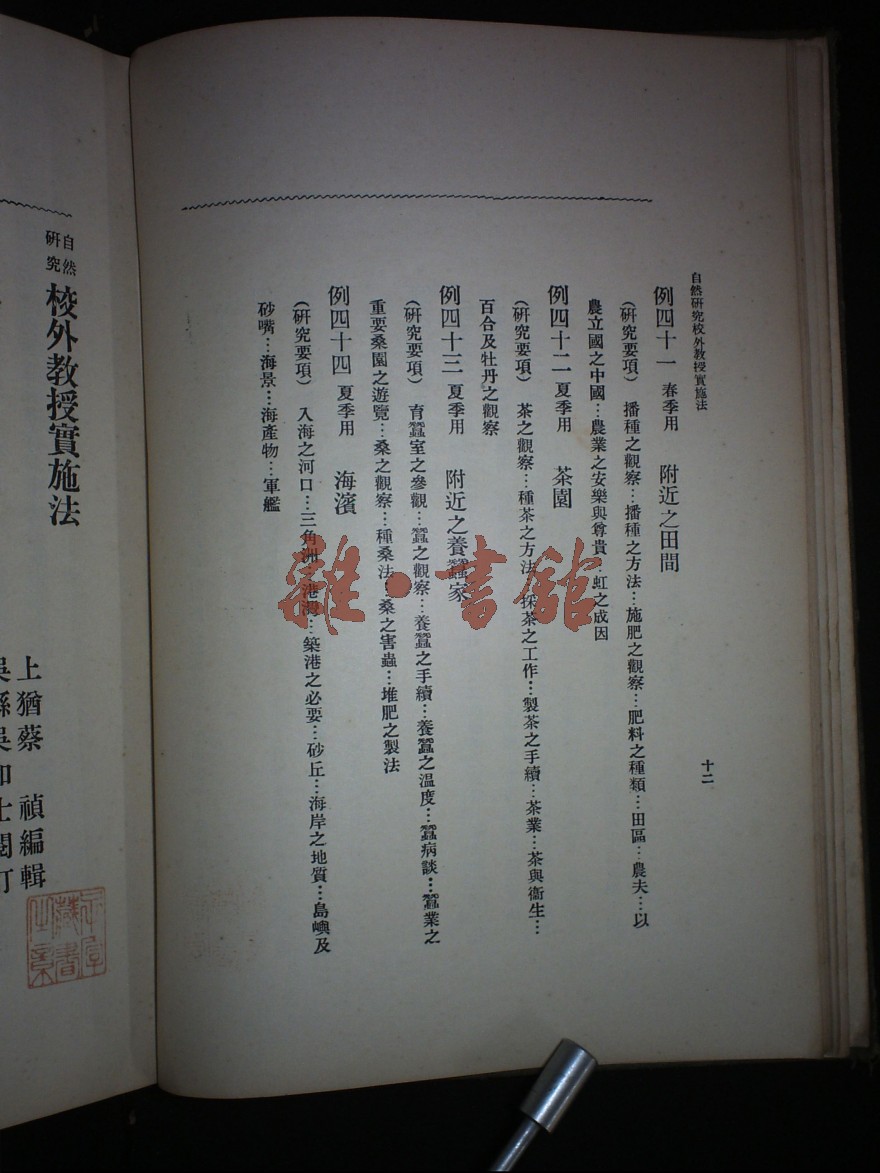 自然研究校外教授實施法
十二
例四十一 春季用 附近之田間
(研究要項) 播種之觀察…播種之方法…施肥之觀察…肥料之種類…田區…農夫…以
農立國之中國…農業之安樂與尊貴 虹之成因
例四十二 夏季用 茶園
(研究要項) 茶之觀察…種茶之方法 採茶之工作…製茶之手續…茶業…茶與衞生…
百合及牡丹之觀察
例四十三 夏季用 附近之養蠶家
(研究要項) 育蠶室之參觀…蠶之觀察…養蠶之手續…養蠶之温度…蠶病談…蠶業之
重要桑園之遊覽…桑之觀察…種桑法…桑之害蟲…堆肥之製法
例四十四 夏季用 海濱
(研究要項) 入海之河口…三角洲…港灣…築港之必要…砂丘…海岸之地質…島嶼及
砂嘴…海景…海產物…軍艦
自然研究 校外教授實施法
上猶蔡 禎編輯
雜·書館